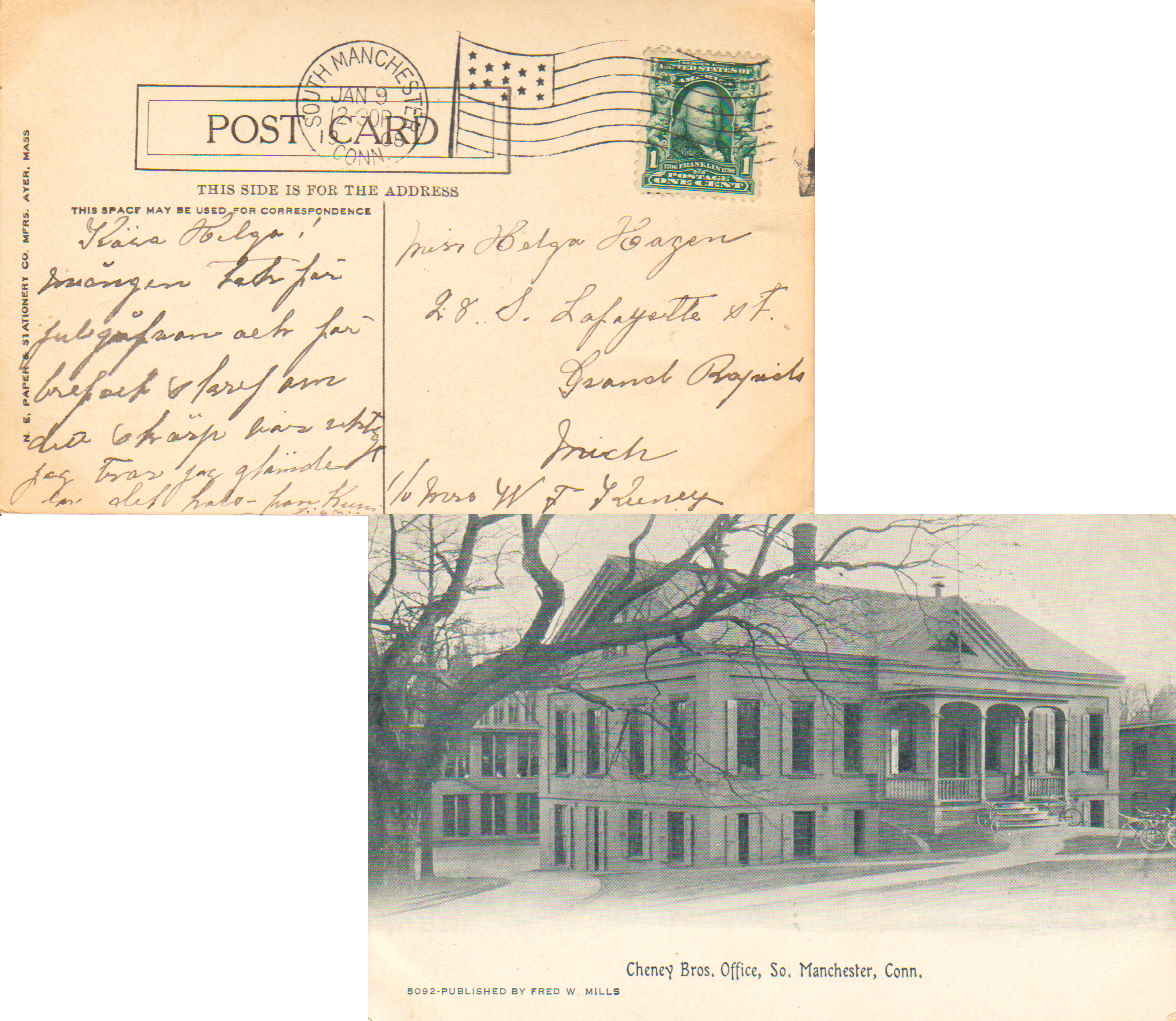 SOUTH MANCHESTER
JAN 9
12-30P
1908
CONN.
UNITED STATES OF
AMERICA
1 1
1706 FRANKLIN 1790
POSTAGE
ONE CENT
POST CARD
THIS SIDE IS FOR THE ADDRESS
THIS SPACE MAY BE USED FOR CORRESPONDENCE
N. E. PAPER & STATIONERY CO. MFRS. AYER, MASS
Kära Helga!
mången tack för
julgåfvan och för
bref och skref om
det skärp var
jag tror jag glömde
det
Miss Helga Hazen
28. S. Lafayette st.
Grand Rapids
Mich
c/o Mrs W F Keeney
Cheney Bros. Office, So. Manchester, Conn.
5092-PUBLISHED BY FRED W. MILLS